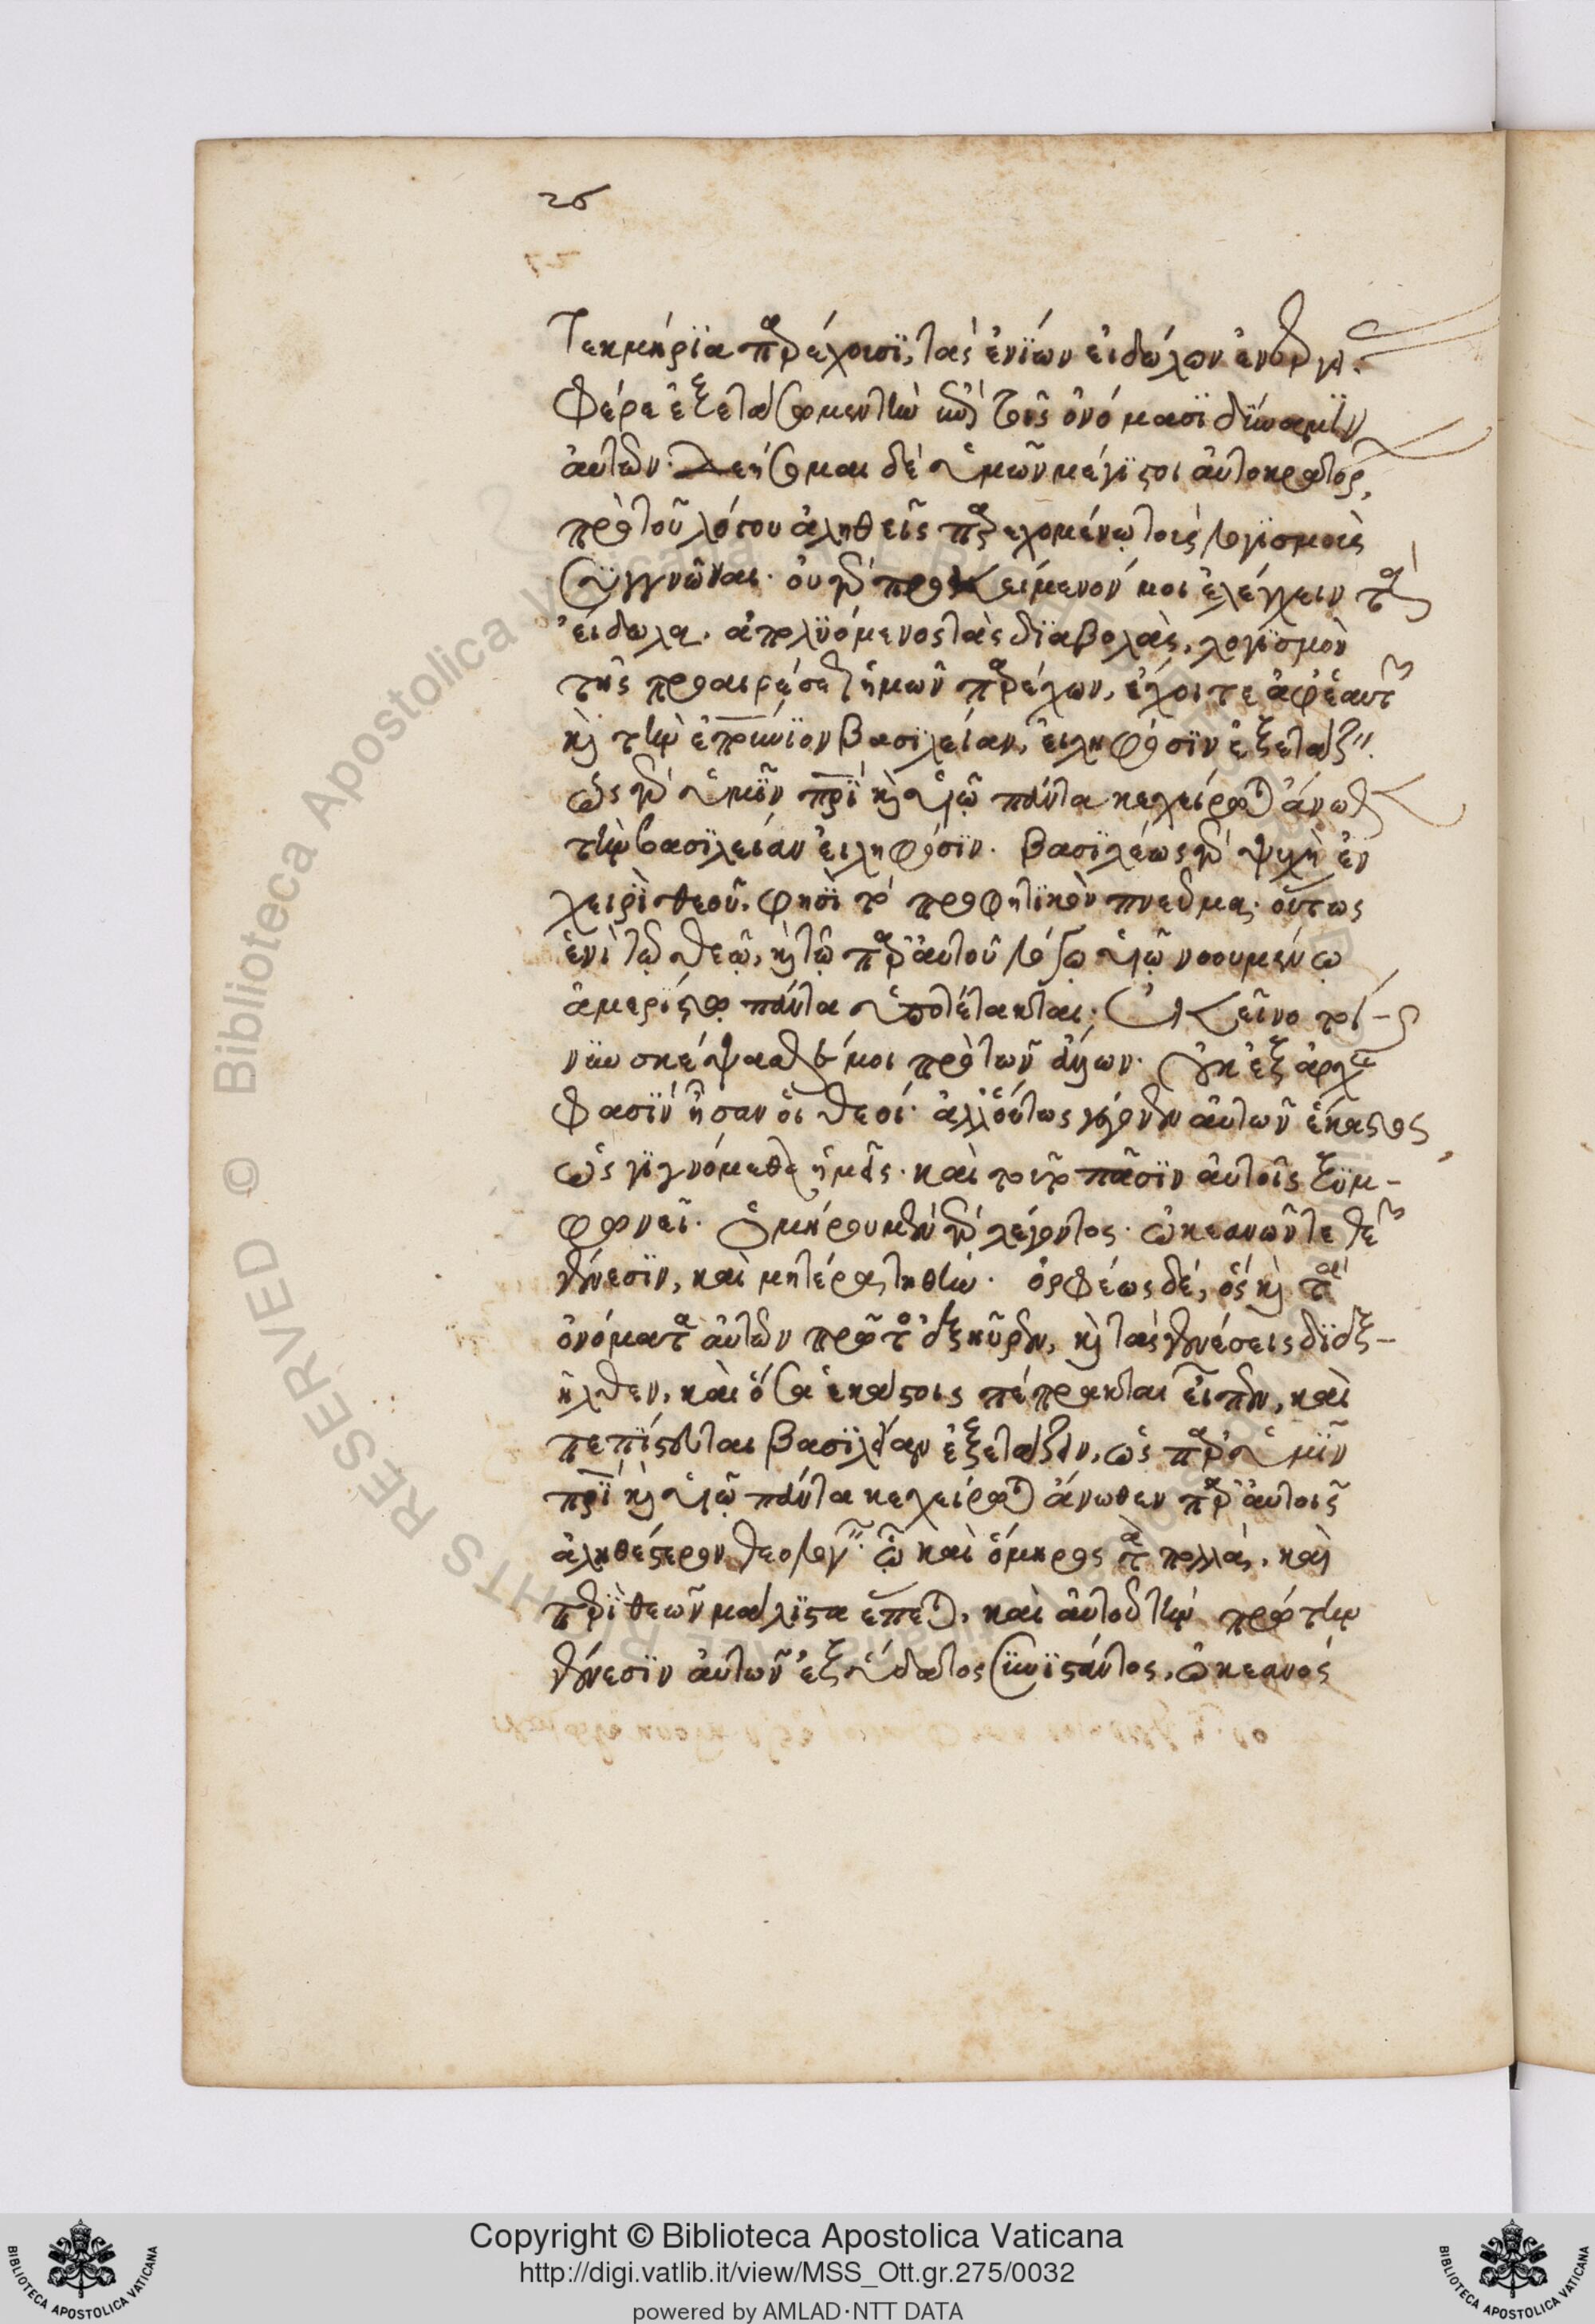 26
Τεκμήρια παρέχουσι, τὰς ἐνίων εἰδώλων ἐνεργείας.
Φέρε ἐξετάσωμεν τὴν ἐπὶ τοῖς ὀνόμασι δύναμιν
αὐτῶν. Δεήσομαι δὲ ὑμῶν μέγιστοι αὐτοκράτορες,
πρὸ τοῦ λόγου ἀληθεῖς παρεχομένῳ τοὺς λογισμοὺς
συγγνῶναι. οὐ γὰρ προκείμενόν μοι ἐλέγχειν τὰ
εἴδωλα. ἀπολυόμενος τὰς διαβολὰς, λογισμὸν
τῆς προαιρέσεως ἡμῶν παρέχων, ἔχοιτε ἀφ' ἑαυτῶν
καὶ τὴν ἐπουράνιον βασιλείαν, εἰληφόσιν ἐξετάζειν.
ὡς γὰρ ὑμῖν πατρὶ καὶ υἱῷ πάντα κεχείρωται ἄνωθεν
τὴν βασιλείαν εἰληφόσιν. βασιλέως γὰρ ψυχὴ ἐν
χειρὶ θεοῦ, φησὶ τὸ προφητικὸν πνεῦμα. οὕτως
ἑνὶ τῷ θεῷ, καὶ τῷ παρ' αὐτοῦ λόγῳ υἱῷ νοουμένῳ
ἀμερίστῳ πάντα ὑποτέτακται. Ἐκεῖνο τοί-
νυν σκέψασθέ μοι πρὸ τῶν ἄλλων. Οὐκ ἐξ ἀρχῆς
φασὶν ἦσαν οἱ θεοί. ἀλλ' οὕτως γέγονεν αὐτῶν ἕκαστος
ὡς γιγνόμεθα ἡμεῖς. καὶ τοῦτο πᾶσιν αὐτοῖς ξυμ-
φωνεῖ. Ὁμήρου μὲν γὰρ λέγοντος. ὠκεανῶν τε θεῶν
γένεσιν, καὶ μητέρα τηθύν. ὀρφέως δέ, ὃς καὶ τὰ
ὀνόματα αὐτῶν πρῶτος ἐξηῦρεν, καὶ τὰς γενέσεις διεξ-
ῆλθεν, καὶ ὅσα ἑκάστοις πέπρακται εἶπεν, καὶ
πεπίστευται βασιλείαν ἐξετάζειν, ὡς παρ' ὑμῖν
πατρὶ καὶ υἱῷ πάντα κεχείρωται ἄνωθεν παρ' αὐτοῖς
ἀληθέστερον θεολογεῖν. ᾧ καὶ ὅμηρος τὰ πολλά, καὶ
περὶ θεῶν μάλιστα ἕπεται, καὶ αὐτοῦ τὴν πρώτην
γένεσιν αὐτῶν ἐξ ὕδατος συνιστάντος, ὠκεανός
Copyright © Biblioteca Apostolica Vaticana
http://digi.vatlib.it/view/MSS_Ott.gr.275/0032
powered by AMLAD·NTT DATA